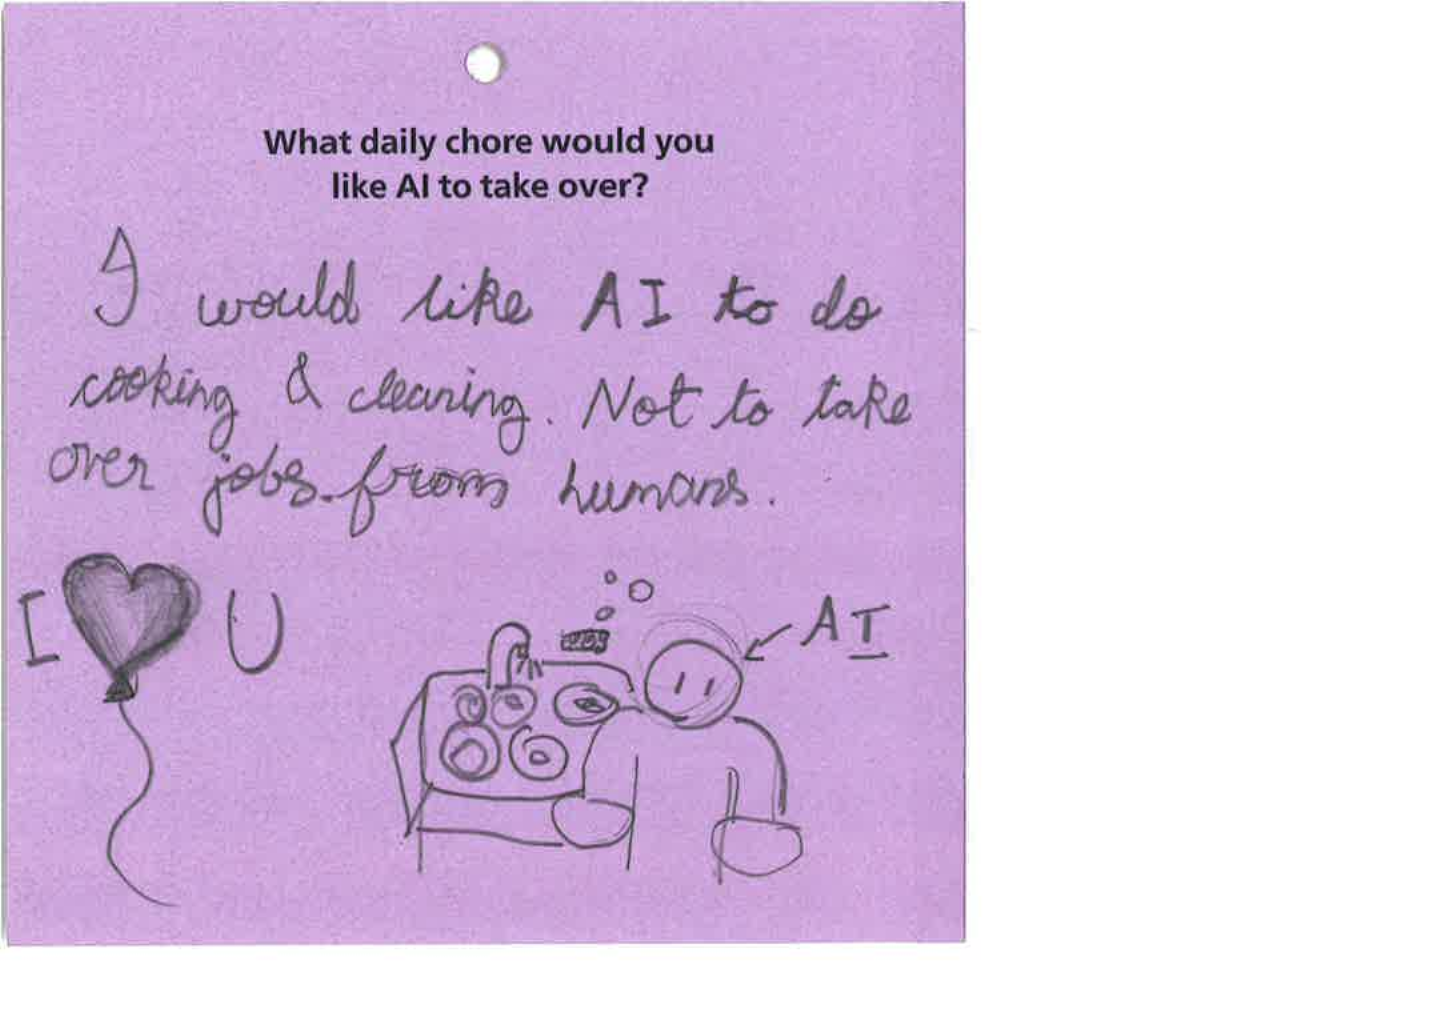 What daily chore would you
like AI to take over?
I would like AI to do
cooking & cleaning. Not to take
over jobs from humans.
I U
AI